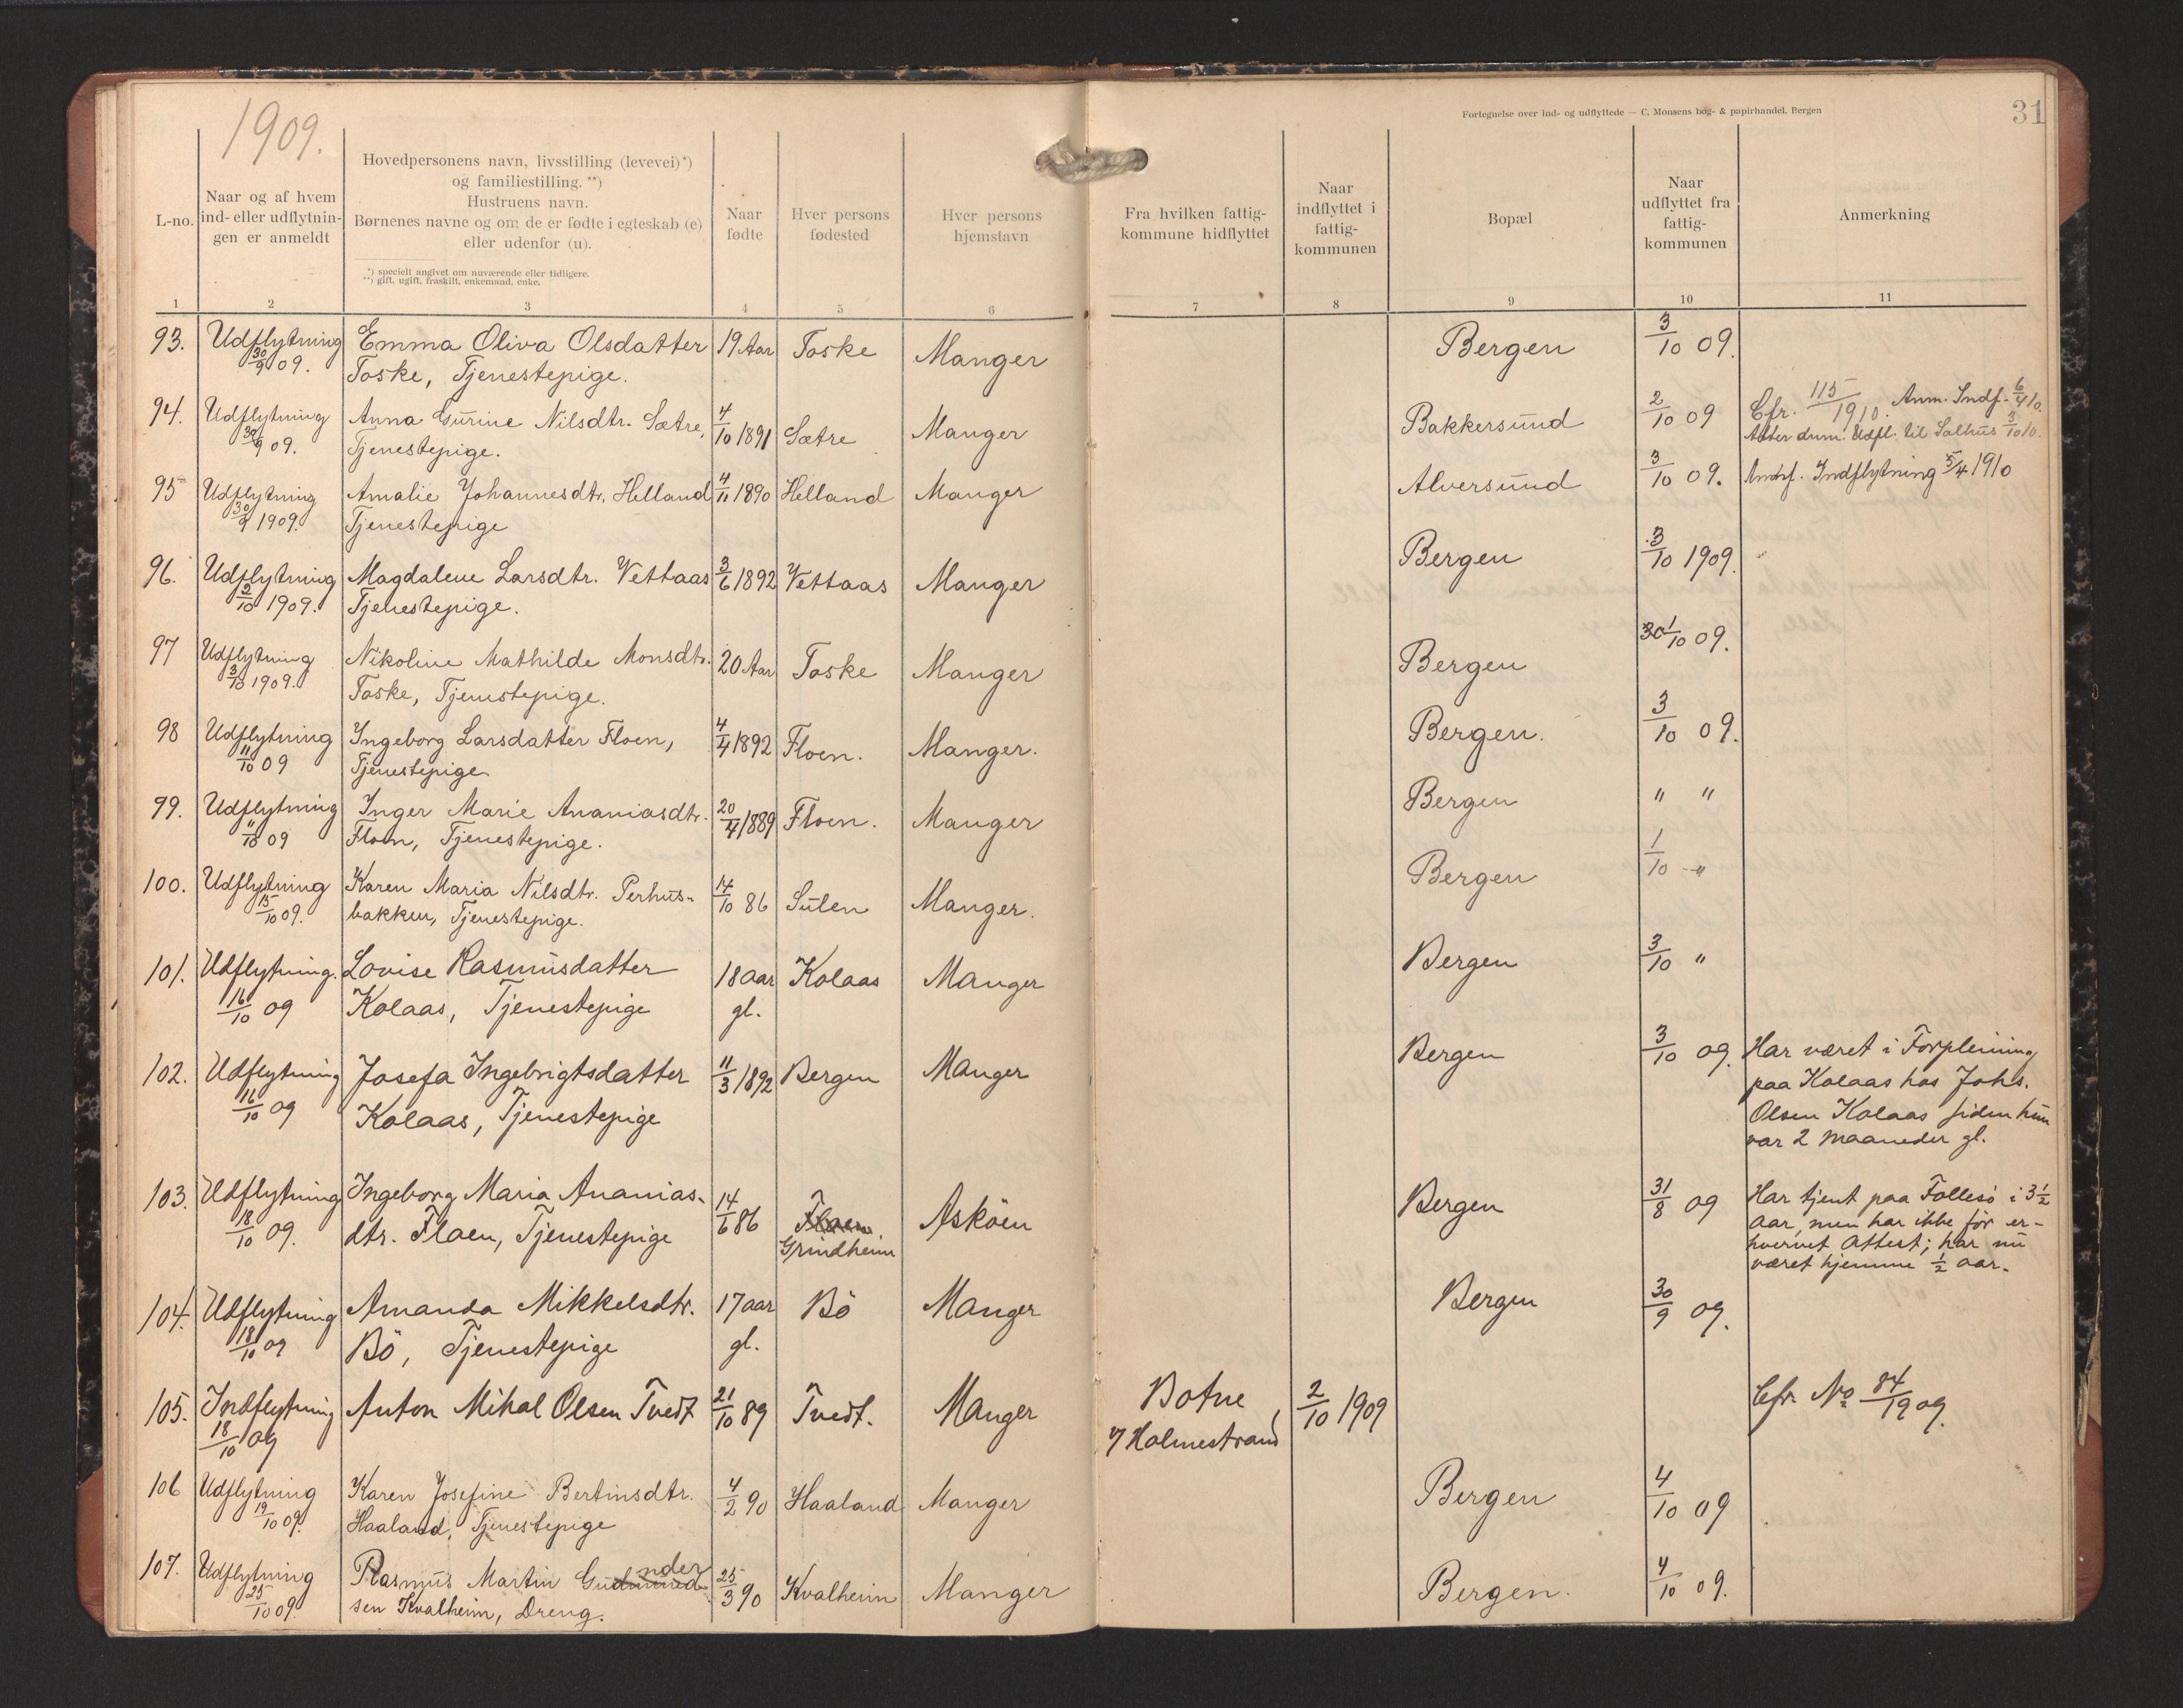 1909.
Fortegnelse over ind- og udflyttede — C. Monsens bog- & papirhandel, Bergen
31
L-no.
Naar og af hvem
ind- eller udflytnin-
gen er anmeldt
Hovedpersonens navn, livsstilling (levevei)*)
og familiestilling. **)
Hustruens navn.
Børnenes navne og om de er fødte i egteskab (e)
eller udenfor (u).
*) specielt angivet om nuværende eller tidligere.
**) gift, ugift, fraskilt, enkemand, enke.
Naar
fødte
Hver persons
fødested
Hver persons
hjemstavn
Fra hvilken fattig-
kommune hidflyttet
Naar
indflyttet i
fattig-
kommunen
Bopæl
Naar
udflyttet fra
fattig-
kommunen
Anmerkning
1 2 3 4 5 6 7 8 9 10 11
93. Udflytning Emma Oliva Olsdatter 19 Aar Toske Manger Bergen 3/10 09.
30/9 09. Toske, Tjenestepige.
94. Udflytning Anna Gurine Nilsdtr. Sætre, 4/10 1891 Sætre Manger Bakkersund 2/10 09 Cfr. 115/1910. Anm. Indf. 6/4 10.
30/9 09. Tjenestepige. Atter dnm. Udfl. til Salhus 3/10 10.
95 Udflytning Amalie Johannesdtr. Helland 4/11 1890 Helland Manger Alversund 3/10 09. Indflytning 5/4 1910
30/9 1909. Tjenestepige
96. Udflytning Magdalene Larsdtr. Vettaas 3/6 1892 Vettaas Manger Bergen 3/10 1909.
3/10 1909. Tjenestepige.
97 Udflytning Nikoline Mathilde Monsdtr. 20 Aar Toske Manger Bergen 1/10 09.
3/10 1909. Toske, Tjenestepige.
98 Udflytning Ingeborg Larsdatter Floen, 4/4 1892 Floen. Manger. Bergen. 3/10 09.
11/10 09 Tjenestepige
99. Udflytning Inger Marie Ananiasdtr. 20/4 1889 Floen. Manger Bergen " "
11/10 09 Floen, Tjenestepige.
100. Udflytning Karen Maria Nilsdtr. Perhus- 14/10 86 Sulen Manger. Bergen 1/10 -"
15/10 09. bakken, Tjenestepige.
101. Udflytning. Lovise Rasmusdatter 18 aar Kolaas Manger Bergen 3/10 "
16/10 09 Kolaas, Tjenestepige gl.
102. Udflytning Josefa Ingebrigtsdatter 11/3 1892 Bergen Manger Bergen 3/10 09. Har været i Forpleining
16/10 09 Kolaas, Tjenestepige paa Kolaas hos Johs.
Olsen Kolaas siden hun
var 2 maaneder gl.
103. Udflytning Ingeborg Maria Ananias- 14/6 86 Floen Askøen Bergen 31/8 09 Har tjent paa Follesö i 3½
18/10 09. dtr. Floen, Tjenestepige Grindheim aar, men har ikke før er-
hvervet Attest; har nu
været hjemme ½ aar.
104. Udflytning Amanda Mikkelsdtr. 17 aar Bö Manger Bergen 30/9 09.
18/10 09 Bö, Tjenestepige gl.
105. Indflytning Anton Mikal Olsen Tvedt 21/10 89 Tvedt. Manger Botne 2/10 1909 Cfr. No 84/1909.
18/10 09 Holmestrand
106 Udflytning Karen Josefine Bertinsdtr. 4/2 90 Haaland Manger Bergen 4/10 09
19/10 09. Haaland, Tjenestepige
107. Udflytning Rasmus Martin Gudmund nder 25/3 90 Kvalheim Manger Bergen. 4/10 09.
25/10 09. sen Kvalheim, Dreng.